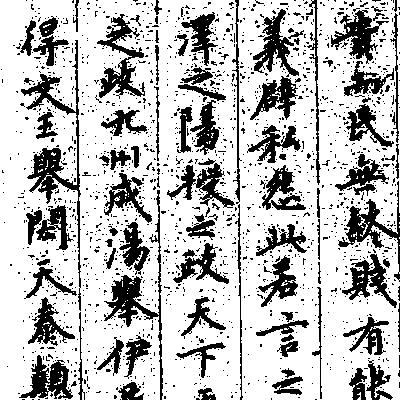 貴而民無終賤有能
義辟私怨此若言之
澤之陽授之政天下
之政九州成湯舉伊
得文王舉閎天泰顛